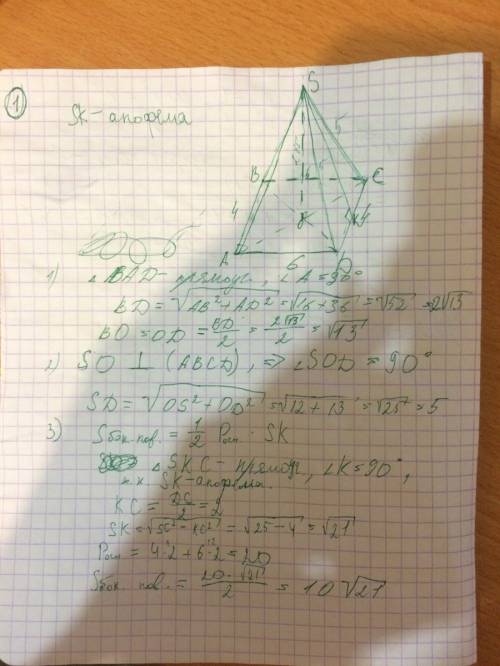 1
SK - апофема
S
5
B
C
4
4
K
A
6
D
1) △BAD - прямоуг., ∠A = 90°
BD = √AB² + AD² = √16 + 36 = √52 = 2√13
BO = OD = BD/2 = 2√13/2 = √13
2) SO ⊥ (ABCD), => ∠SOD = 90°
SD = √OS² + OD² = √12 + 13 = √25 = 5
3) Sбок. пов. = 1/2 Pосн · SK
△SKC - прямоуг., ∠K = 90°,
т.к. SK - апофема.
KC = DC/2 = 2
SK = √SC² - KC² = √25 - 4 = √21
Pосн = 4·2 + 6·2 = 20
Sбок. пов. = 20·√21/2 = 10√21